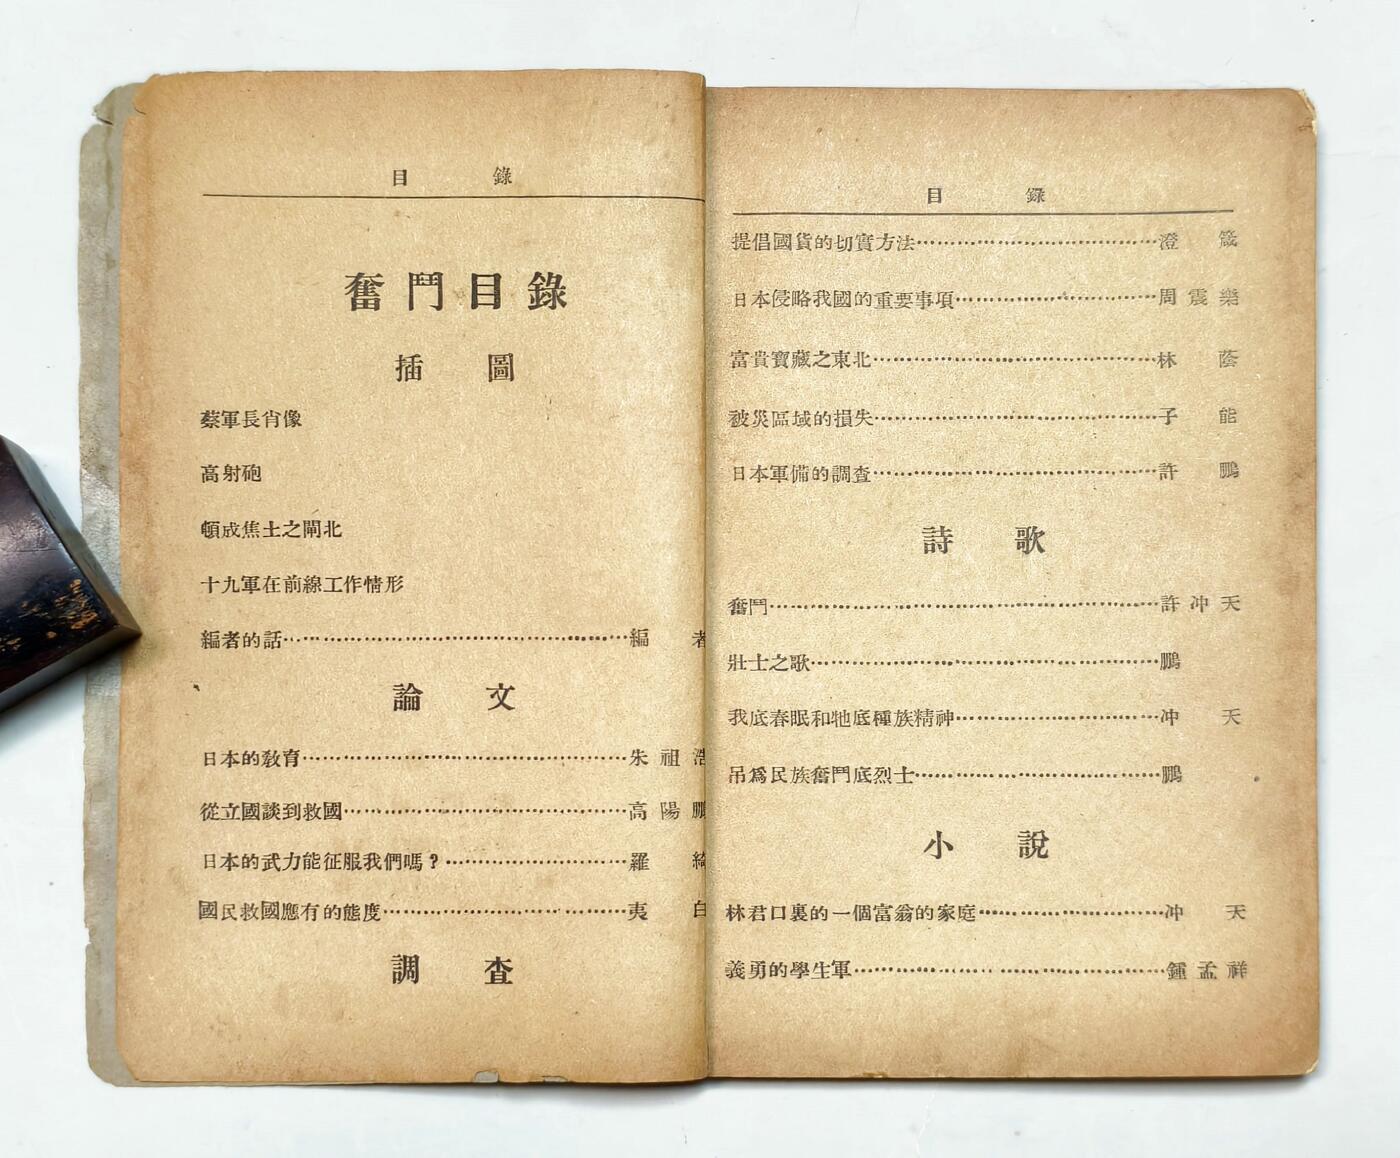 目 錄
奮鬥目錄
插 圖
蔡軍長肖像
高射砲
頓成焦土之閘北
十九軍在前線工作情形
編者的話……編 者
論 文
日本的敎育……朱祖浩
從立國談到救國……高陽鵬
日本的武力能征服我們嗎？……羅 綺
國民救國應有的態度……夷 白
調 查
目 錄
提倡國貨的切實方法……澄 箴
日本侵略我國的重要事項……周震樂
富貴寶藏之東北……林 蔭
被災區域的損失……子 能
日本軍備的調查……許 鵬
詩 歌
奮鬥……許冲天
壯士之歌……鵬
我底春眠和牠底種族精神……冲 天
吊爲民族奮鬥底烈士……鵬
小 說
林君口裏的一個富翁的家庭……冲 天
義勇的學生軍……鍾孟祥